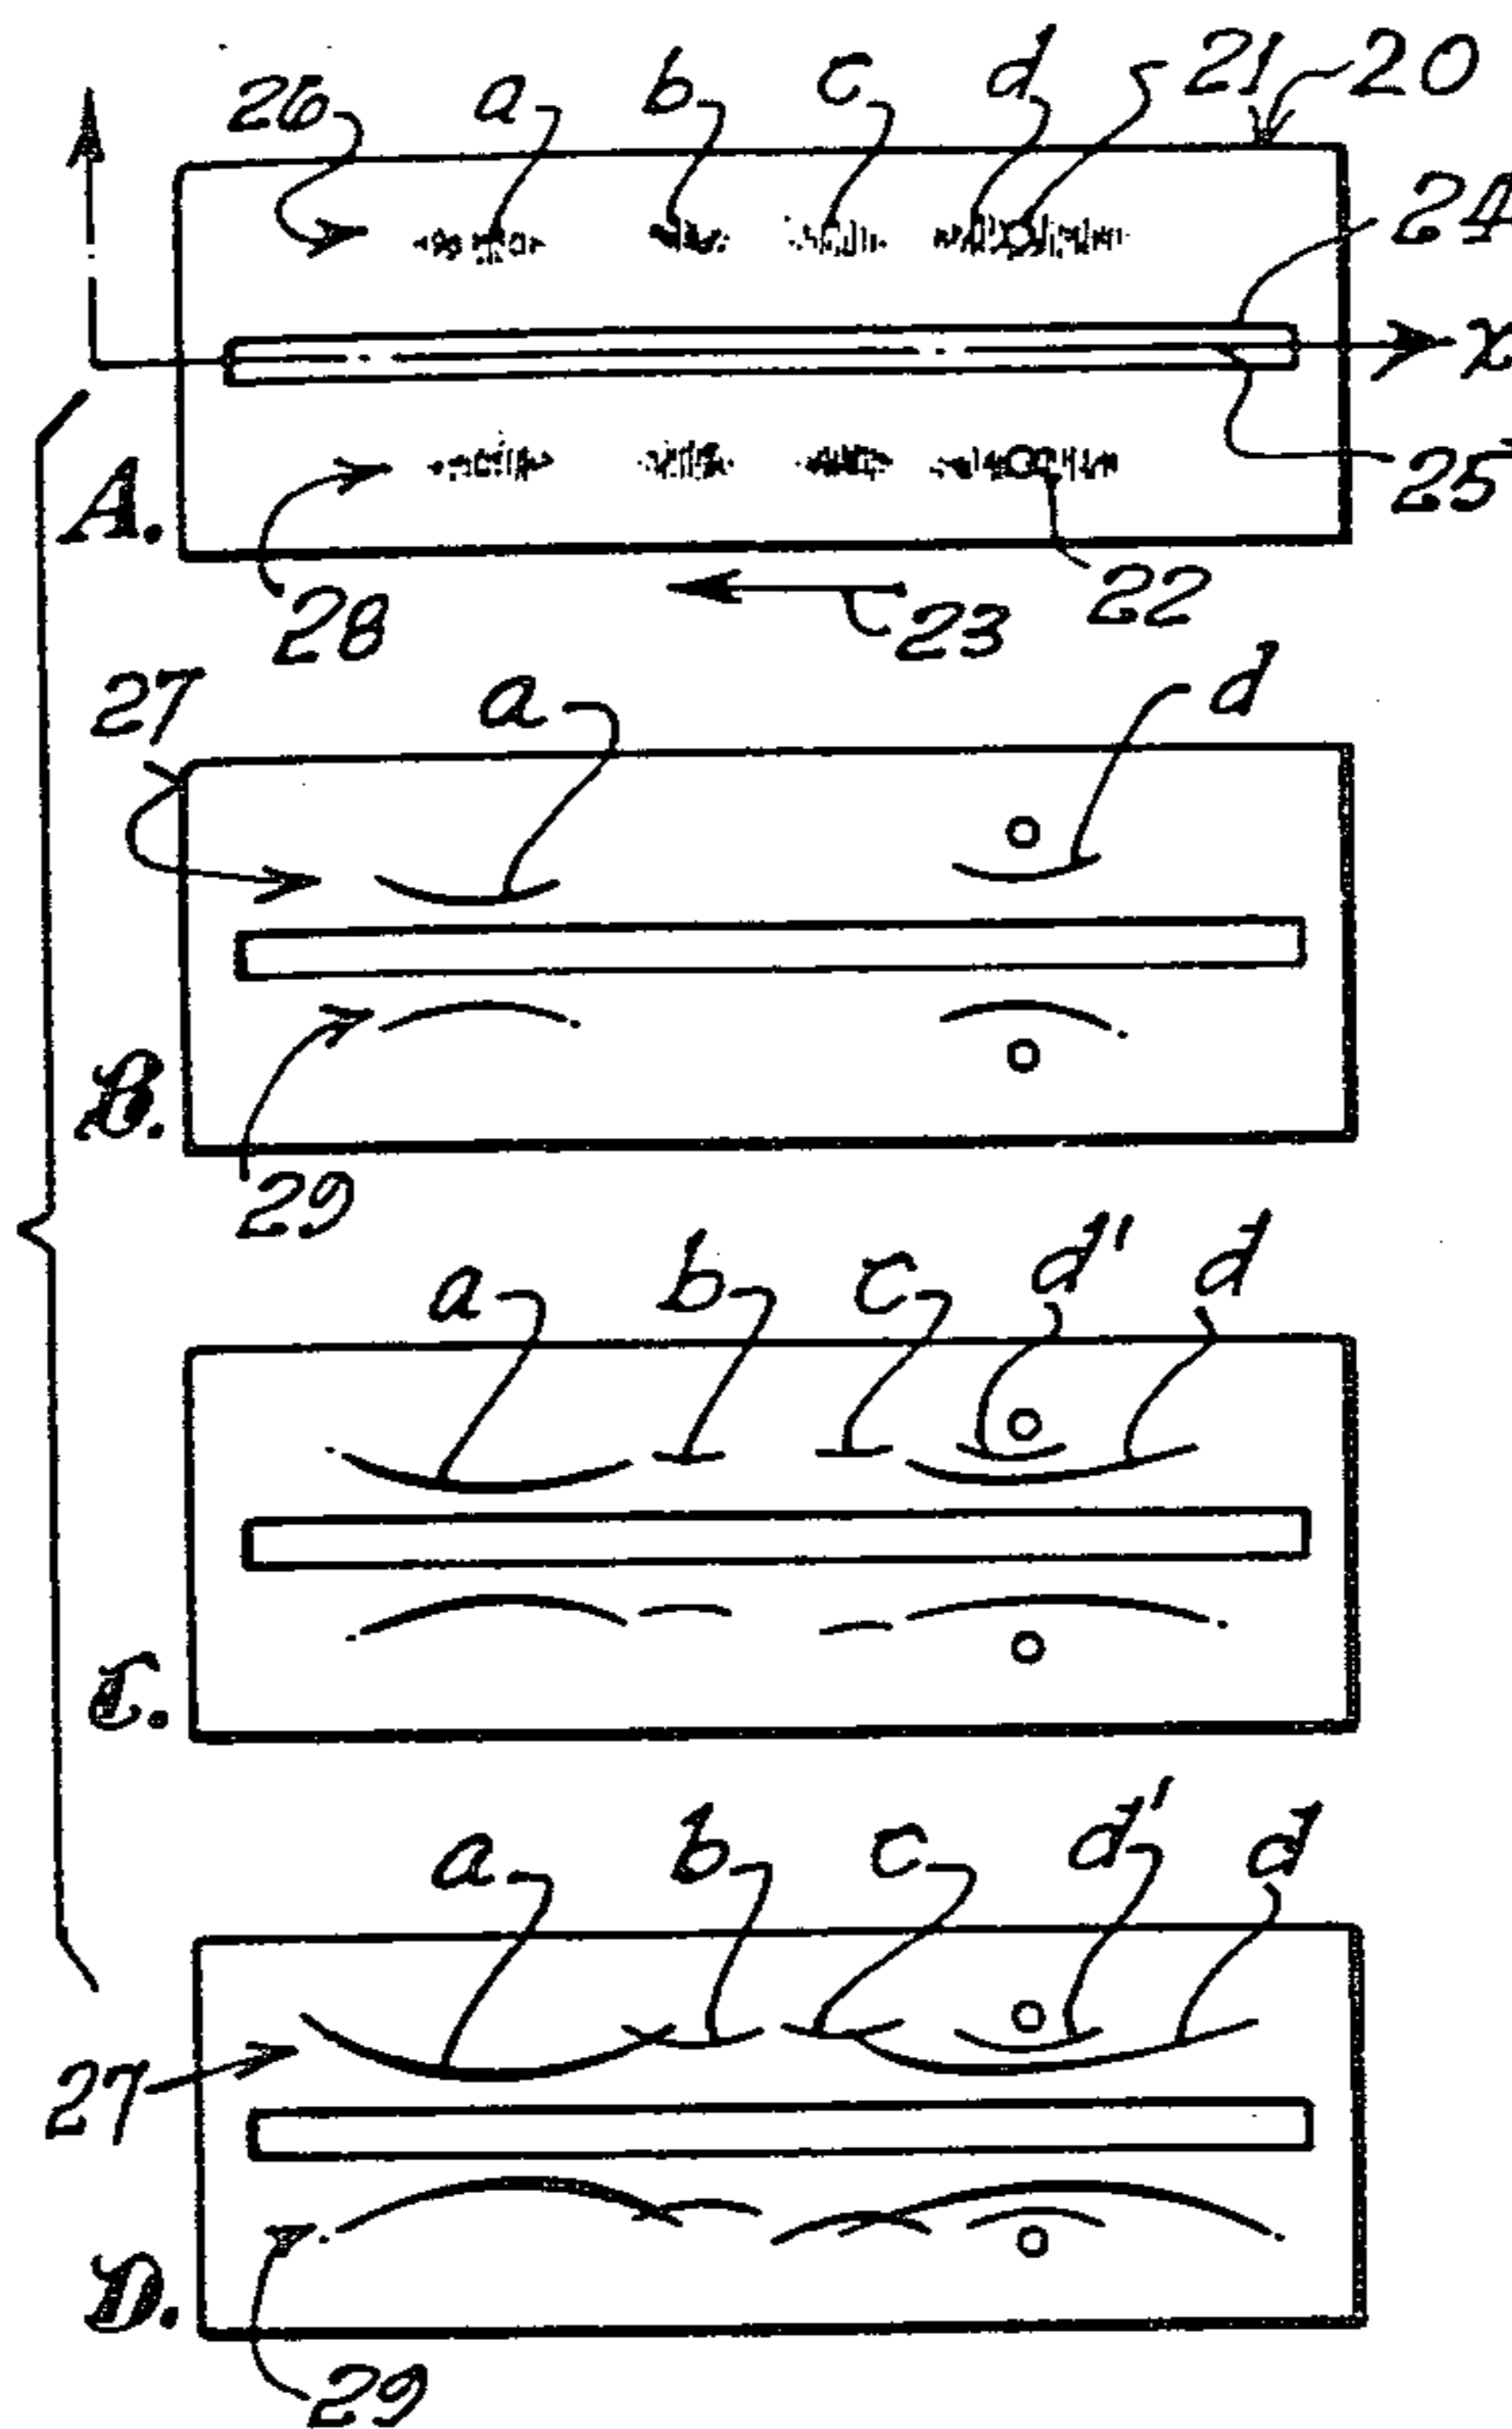 26 a b c d 21 20
24
x
25
A.
28 23 22
27 a d
B.
29
a b c d' d
C.
a b c d' d
27
D.
29